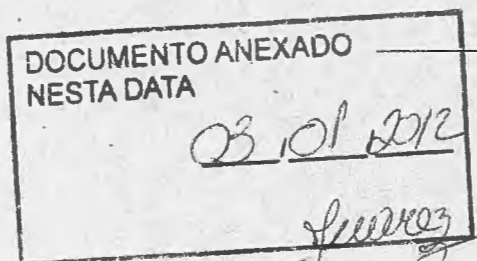 DOCUMENTO ANEXADO
NESTA DATA
03 01 2012